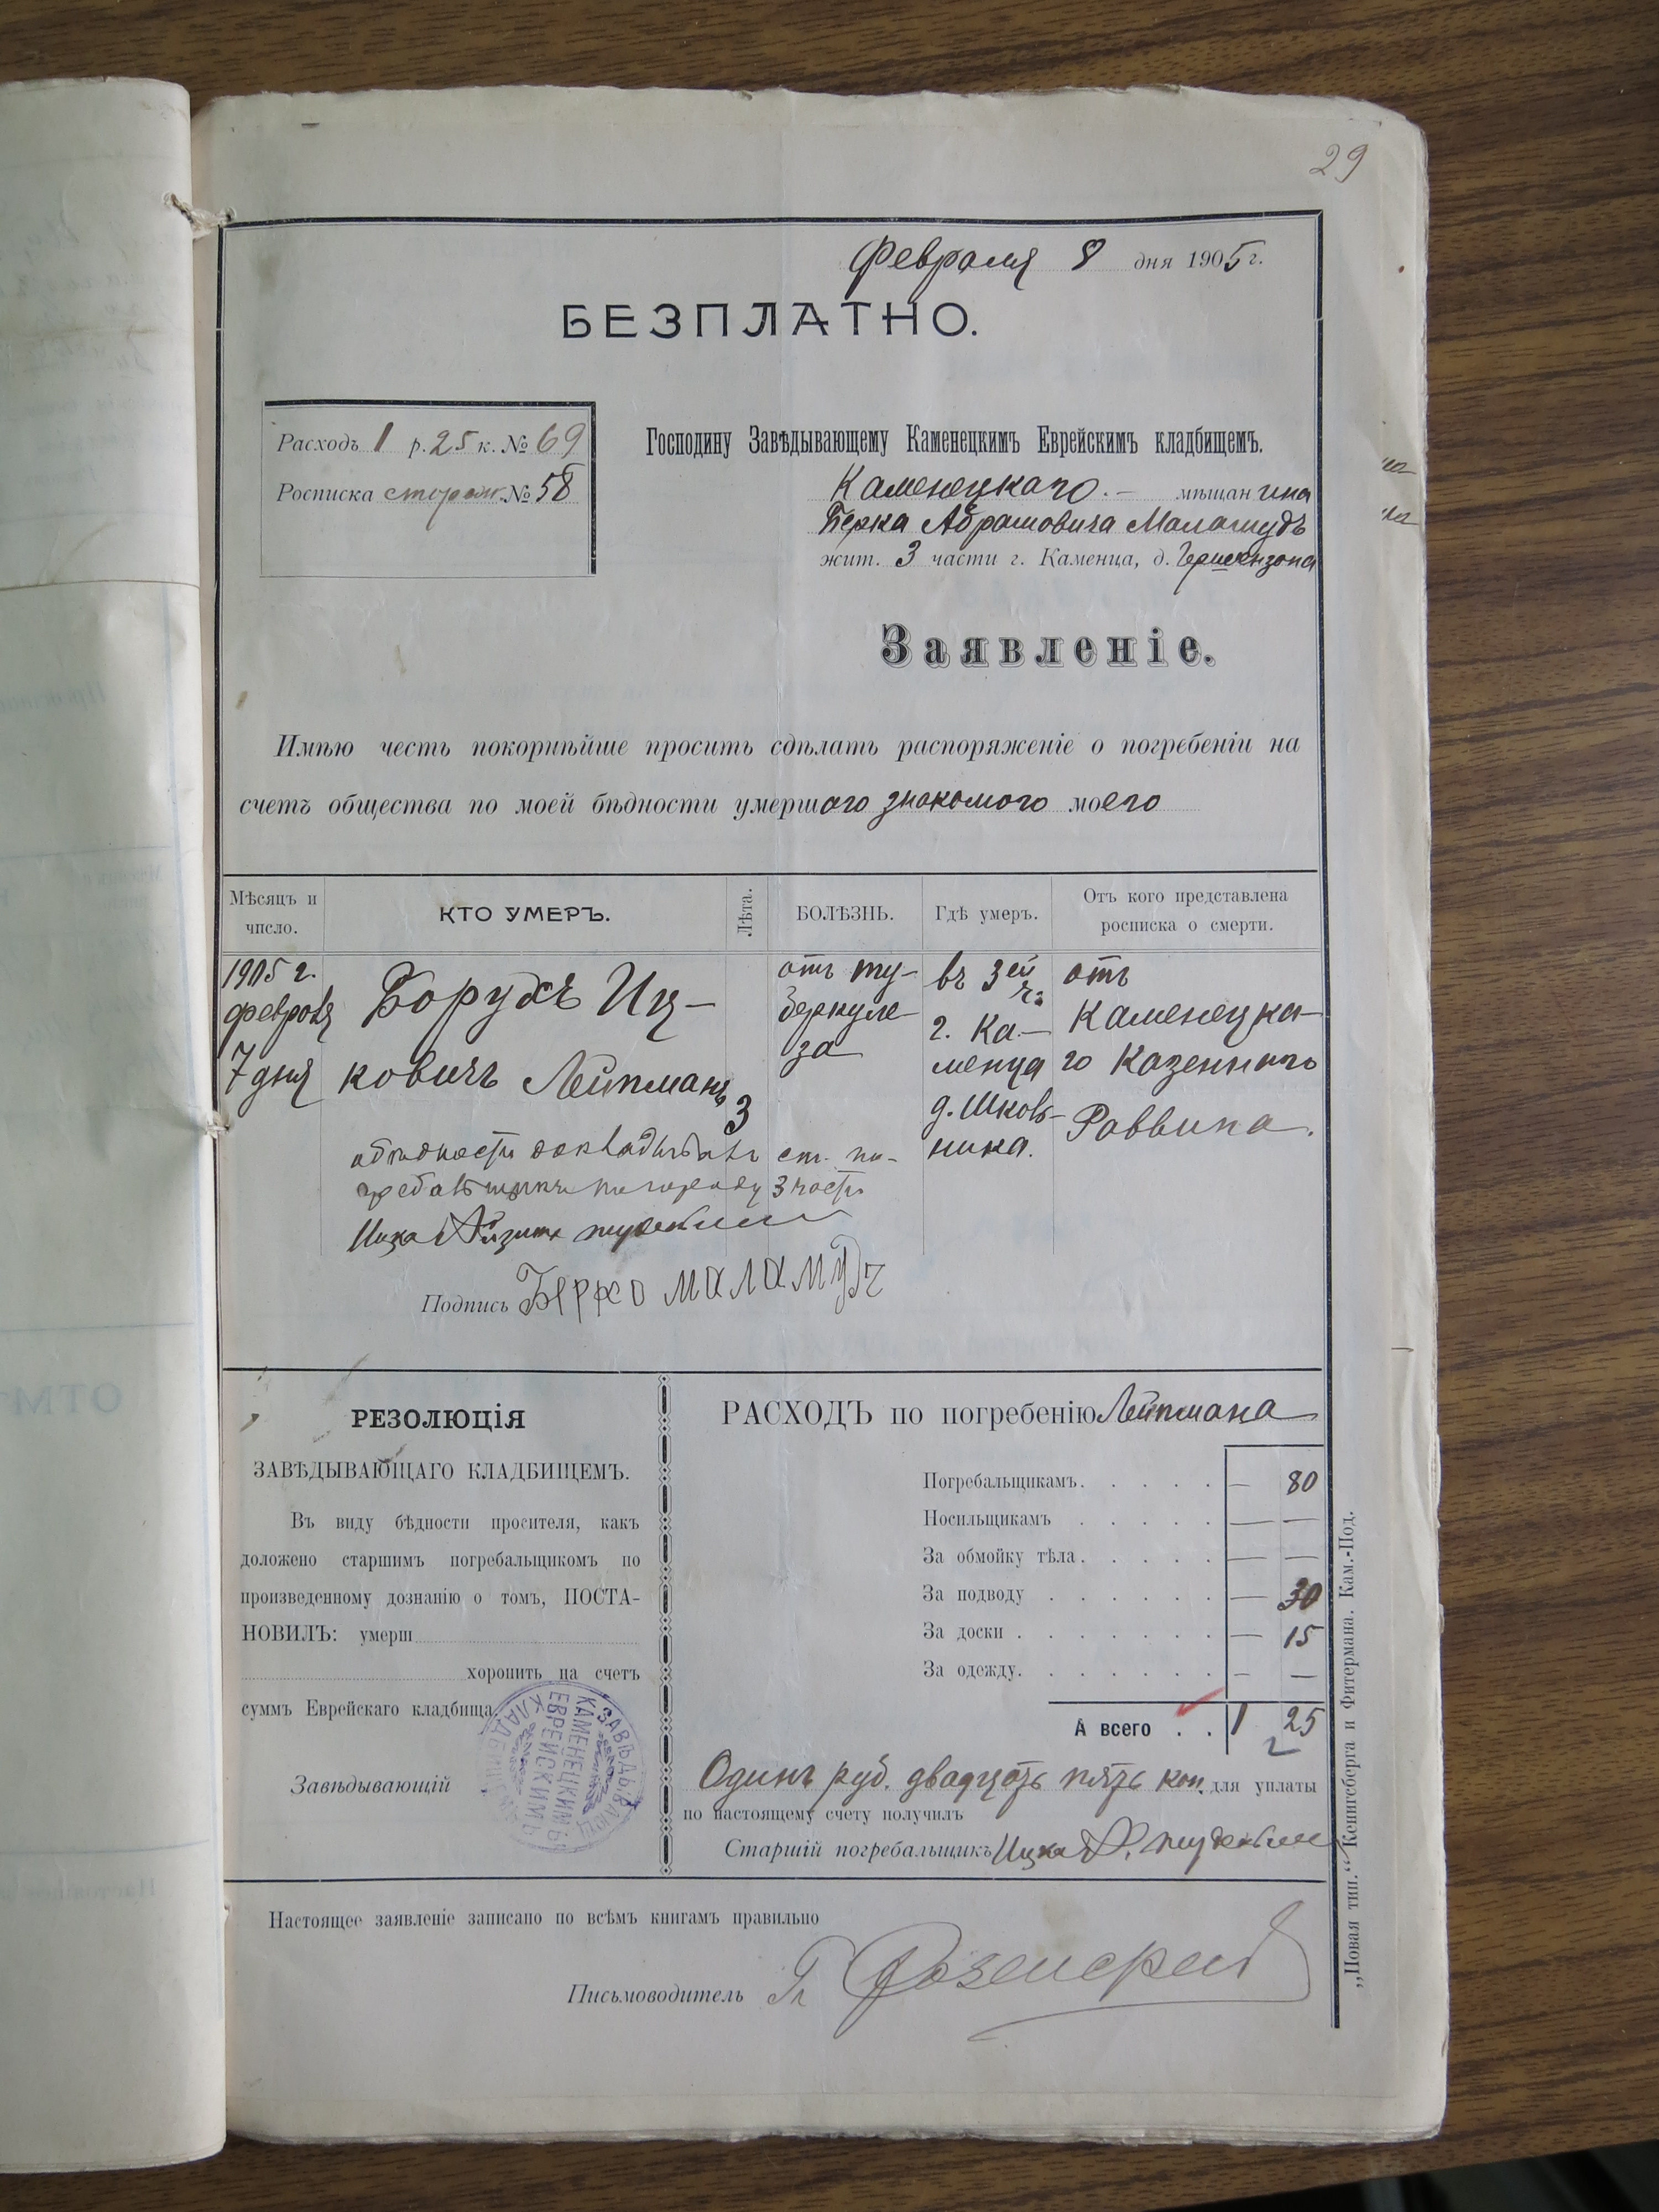 29
Февраля 8 дня 1905 г.
БЕЗПЛАТНО.
Расходъ 1 р. 25 к. № 69
Росписка сторож. № 58
Господину Завѣдывающему Каменецкимъ Еврейскимъ кладбищемъ.
Каменецкаго. – мѣщанина
Берка Абрамовича Маламудъ
жит. 3 части г. Каменца, д. Гершензона
Заявленіе.
Имѣю честь покорнѣйше просить сдѣлать распоряженіе о погребеніи на
счетъ общества по моей бѣдности умершаго знакомого моего
Мѣсяцъ и число.
КТО УМЕРЪ.
Лѣта.
БОЛѢЗНЬ.
Гдѣ умеръ.
Отъ кого представлена росписка о смерти.
1905 г.
февраля
7 дня
Борухъ Иц-
ковичъ Лейпманъ
3
отъ ту-
беркуле-
за
въ 3ей ч.
г. Ка-
менца
д. Шковь-
ника.
отъ
Каменецка-
го Казеннаго
Раввина.
обѣдности докладываетъ ст. по-
гребальщикъ по городу 3 части
Ицка
Подпись Берко маламудъ
РЕЗОЛЮЦІЯ
ЗАВѢДЫВАЮЩАГО КЛАДБИЩЕМЪ.
Въ виду бѣдности просителя, какъ
доложено старшимъ погребальщикомъ по
произведенному дознанію о томъ, ПОСТА-
НОВИЛЪ: умерш
хоронить на счетъ
суммъ Еврейскаго кладбища.
Завѣдывающій
ЗАВѢДЫВАЮЩ
КАМЕНЕЦКИМЪ
ЕВРЕЙСКИМЪ
КЛАДБИЩЕМЪ
РАСХОДЪ по погребенію Лейпмана
Погребальщикамъ. . . . . — 80
Носильщикамъ . . . . . — —
За обмойку тѣла. . . . . — —
За подводу . . . . . . — 30
За доски . . . . . . . — 15
За одежду. . . . . . . — —
А всего . . 1 25
Одинъ руб. двадцать пять коп. для уплаты
по настоящему счету получилъ
Старшій погребальщикъ Ицка
Настоящее заявленіе записано по всѣмъ книгамъ правильно
Письмоводитель
„Новая тип.“ Кенигсберга и Фитермана. Кам.-Под.